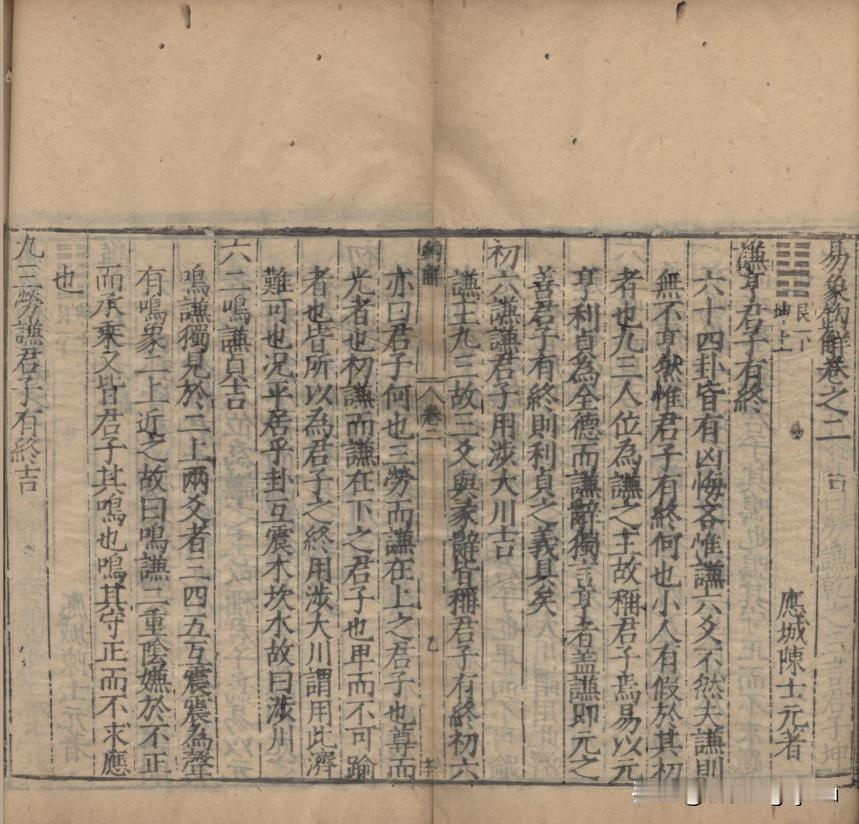 易象鈎解卷之二
應城陳士元著
艮下
坤上
謙亨君子有終
六十四卦皆有凶悔吝惟謙六爻不然夫謙則
無不亨然惟君子有終何也小人有假於其初
者也九三人位為謙之主故稱君子焉易以元
亨利貞為全德而謙辭獨言亨者蓋謙即元之
善君子有終則利貞之義具矣
初六謙謙君子用涉大川吉
謙主九三故三爻與彖辭皆稱君子有終初六
鈎解
卷二
亦曰君子何也三勞而謙在上之君子也尊而
光者也初謙而謙在下之君子也卑而不可踰
者也皆所以為君子之終用涉大川謂用此濟
難可也况平居乎卦互震木坎水故曰涉川
六二鳴謙貞吉
鳴謙獨見於二上兩爻者三四五互震震為聲
有鳴象二上近之故曰鳴謙二重陰嫌於不正
而承乘又皆君子其鳴也鳴其守正而不求應
也
九三勞謙君子有終吉